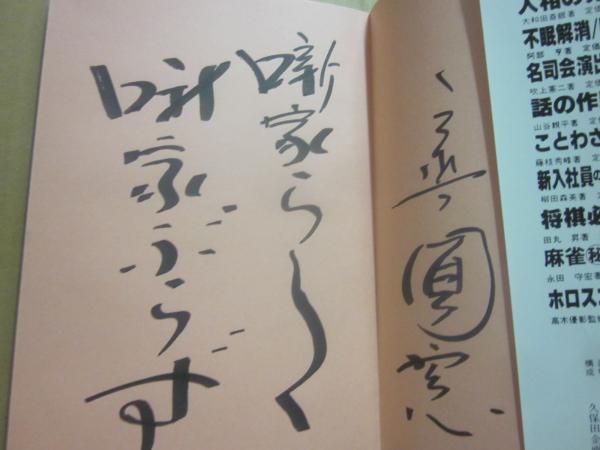 人相の
大和田斉眼著 定価
不眠解消
阿部 亨著 定価
名司会演出
吹上憲二著 定価
話の作
山谷親平著 定
ことわざ
藤枝秀峰著 定
新入社員の
柳田森英著
将棋必
田丸 昇著
麻雀㊙
永田 守宏著
ホロスコ
高木優彰監修
構成
久保田金
圓窓
噺家らしく
噺家ぶらず